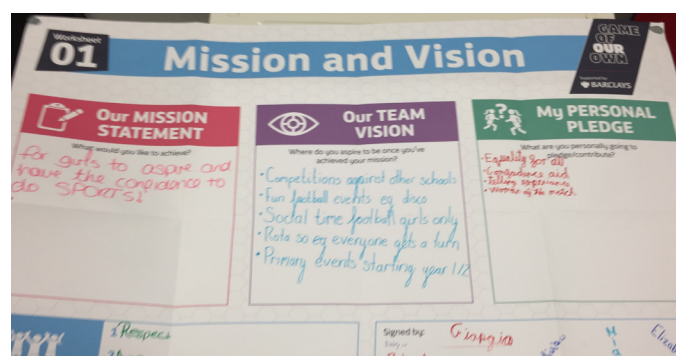 Worksheet
01
Mission and Vision
GAME
OF
OUR
OWN
Supported by
BARCLAYS
Our MISSION
STATEMENT
What would you like to achieve?
for girls to aspire and
have the confidence to
do SPORTS!
Our TEAM
VISION
Where do you aspire to be once you've
achieved your mission?
• Competitions against other schools
• Fun football events eg disco
• Social time football girls only
• Rota so eg everyone gets a turn
• Primary events starting year 1/2
My PERSONAL
PLEDGE
What are you personally going to
pledge/contribute?
- Equality for all
• Confidence aid
• Telling experience
• Women of the match
1 Respect
Signed by:
Giorgia